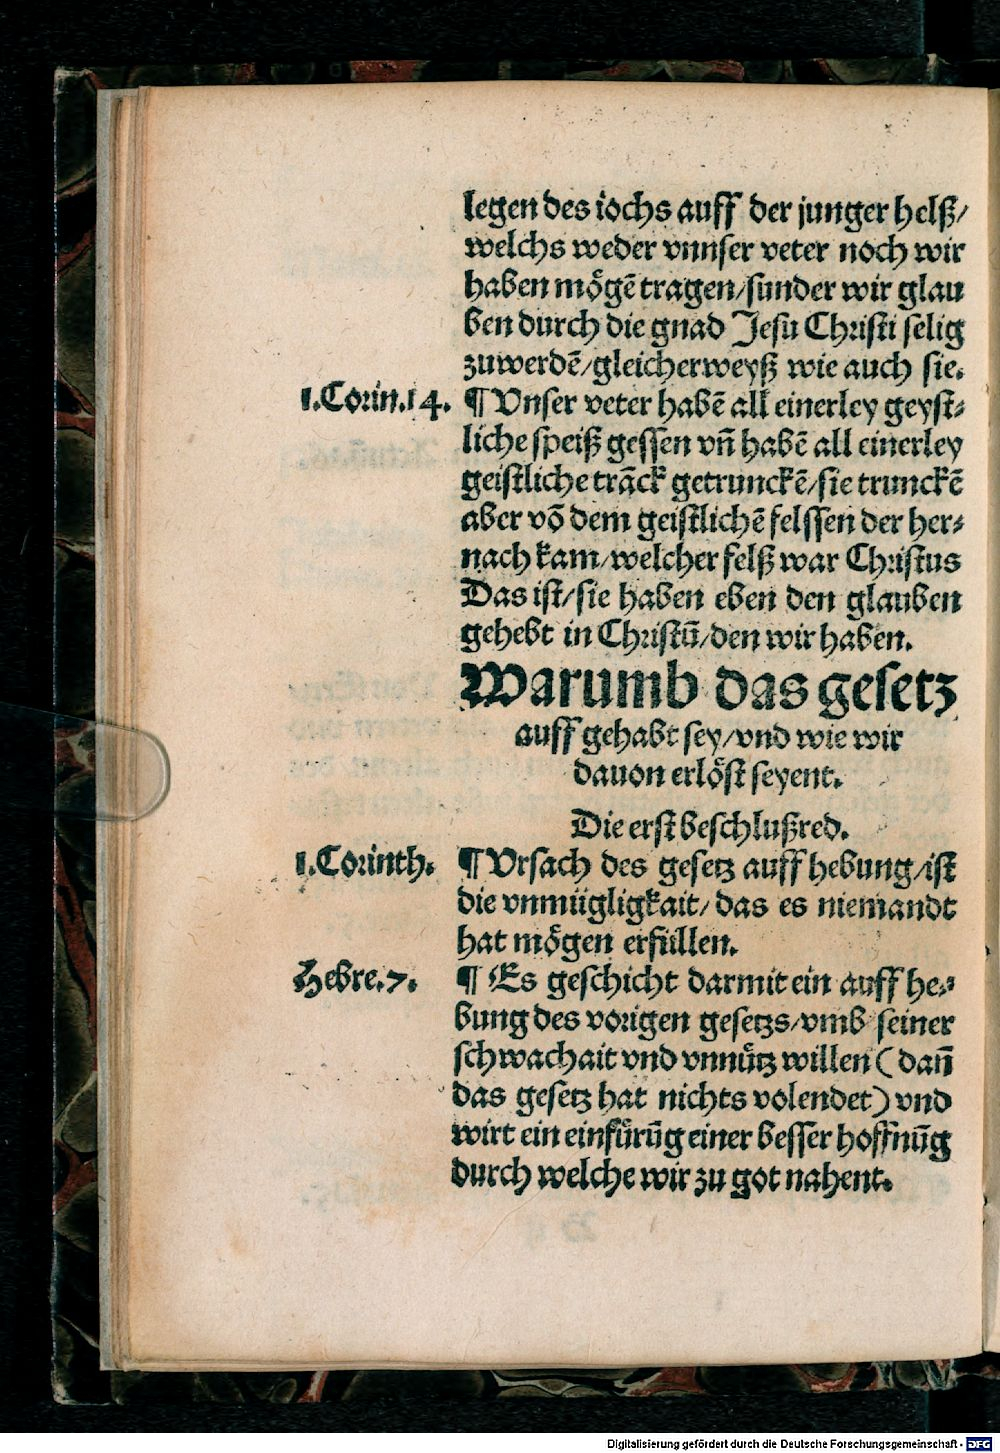 legen des iochs auff der junger helß/
welchs weder vnnser veter noch wir
haben mögẽ tragen/sunder wir glau
ben durch die gnad Jesu Christi selig
zuwerdẽ/gleicherweyß wie auch sie.
1.Corin.14. ¶ Vnser veter habẽ all einerley geyst⸗
liche speiß gessen vñ habẽ all einerley
geistliche trãck getrunckẽ/sie trunckẽ
aber võ dem geistlichẽ felssen der her⸗
nach kam/welcher felß war Christus
Das ist/sie haben eben den glauben
gehebt in Christũ/den wir haben.
Warumb das gesetz
auff gehabt sey/vnd wie wir
dauon erlöst seyent.
Die erst beschlußred.
1.Corinth. ¶ Vrsach des gesetz auff hebung/ist
die vnmügligkait/das es niemandt
hat mögen erfüllen.
Hebre.7. ¶ Es geschicht darmit ein auff he⸗
bung des vorigen gesetzs/vmb seiner
schwachait vnd vnnütz willen (dañ
das gesetz hat nichts volendet) vnd
wirt ein einfürũg einer besser hoffnũg
durch welche wir zu got nahent.
Digitalisierung gefördert durch die Deutsche Forschungsgemeinschaft - DFG